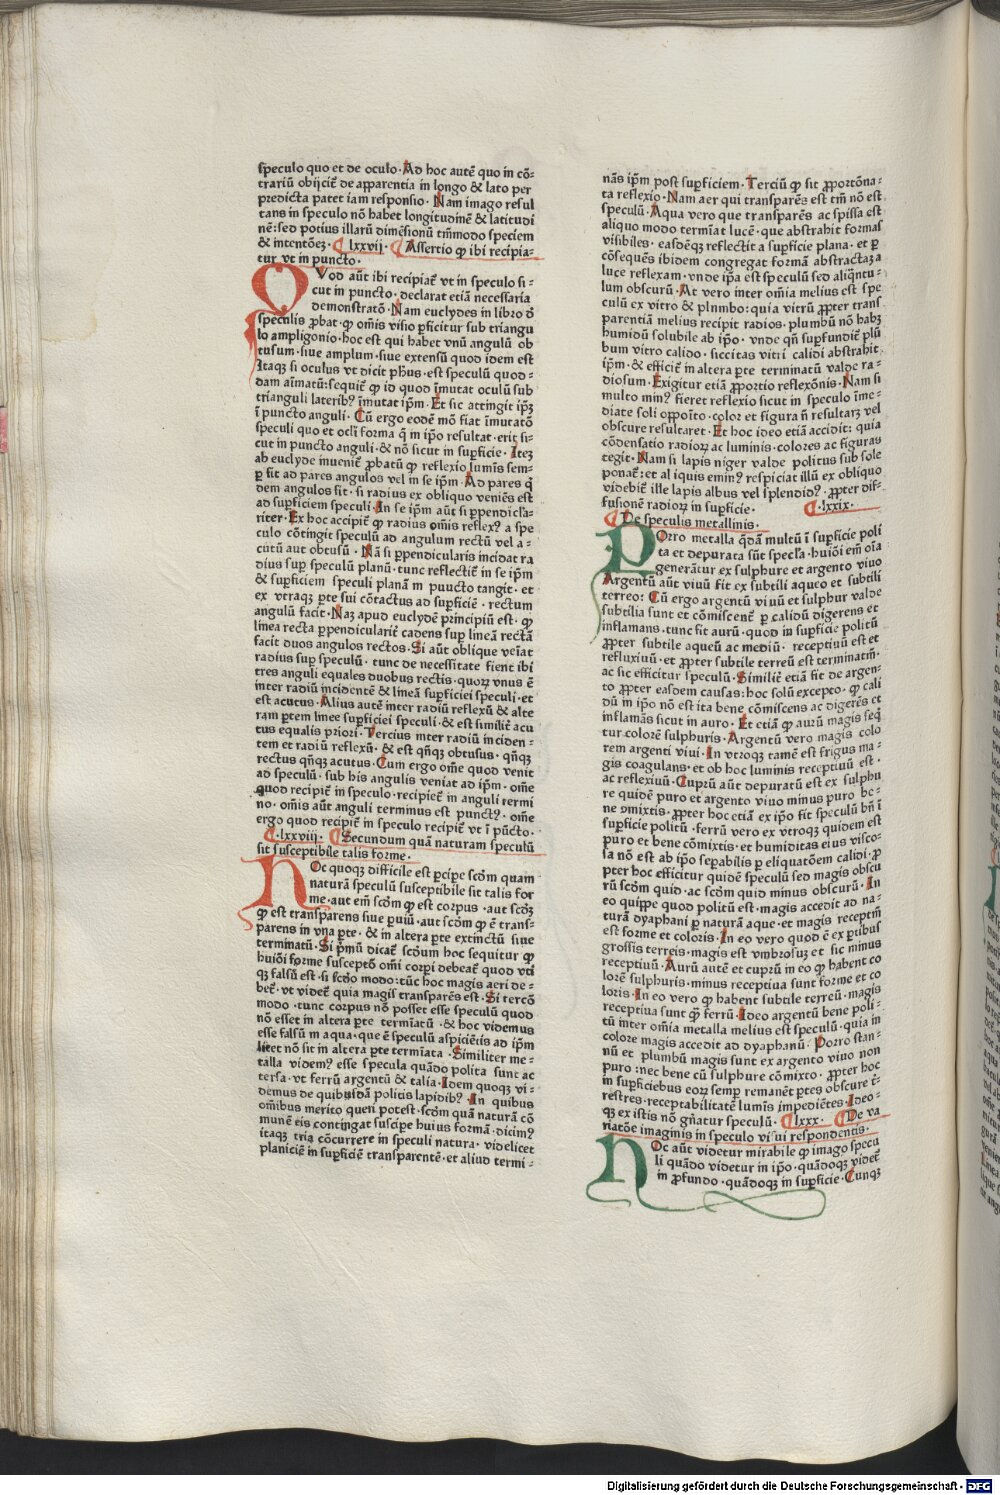 speculo quo et de oculo· Ad hoc autē quo in cō⸗
trariū obijciť de apparentia in longo & lato per
predicta patet iam responsio· Nam imago resul
tans in speculo nō habet longitudinē & latitudi
nē: sed potius illarū dimēsionū tm̄modo speciem
& intentōeꝫ· ¶ lxxvij· ¶ Assertio ꝙ ibi recipia⸗
tur vt in puncto·
QVod aūt ibi recipiať vt in speculo si⸗
cut in puncto· declarat etiā necessaria
demonstratō· Nam euclydes in libro ď
speculis ꝓbat· ꝙ om̄is visio ꝑficitur sub triangu
lo ampligonio· hoc est qui habet vnū angulū ob
tusum· siue amplum· siue extensū quod idem est
Itaqꝫ si oculus vt dicit ph̄us· est speculū quod⸗
dam aīmatū: sequiť ꝙ id quod īmutat oculū sub
trianguli lateribꝰ īmutat ipm̄· Et sic attingit ipꝫ
ī puncto anguli· Cū ergo eodē mō fiat īmutatō
speculi quo et ocľi forma q̄ in ip̄o resultat· erit si⸗
cut in puncto anguli· & nō sicut in suꝑficie· Iteꝫ
ab euclyde inueniť ꝓbatū ꝙ reflexio lumīs sem⸗
ꝑ fit ad pares angulos vel in se ipm̄· Ad pares q̄
dem angulos fit· si radius ex obliquo veniēs est
ad suꝑficiem speculi· In se ipm̄ aūt si ꝑpendicľa⸗
riter· Ex hoc accipiť ꝙ radius om̄is reflexꝰ a spe
culo cōtingit speculū ad angulum rectū vel a⸗
cutū aut obtusū· Nā si ꝑpendicularis incidat ra
dius suꝑ speculū planū· tunc reflectiť in se ipm̄
& suꝑficiem speculi planā in puncto tangit· et
ex vtraqꝫ ꝑte sui cōtactus ad suꝑficiē· rectum
angulū facit· Naꝫ apud euclydē p̄incipiū est· ꝙ
linea recta ꝑpendiculariť cadens suꝑ lineā rectā
facit duos angulos rectos· Si aūt oblique veīat
radius suꝑ speculū· tunc de necessitate fient ibi
tres anguli equales duobus rectis· quoꝝ vnus ē
inter radiū incidentē & lineā suꝑficiei speculi· et
est acutus· Alius autē inter radiū reflexū & alte
ram ꝑtem linee suꝑficiei speculi· & est similiť acu
tus equalis priori· Tercius inter radiū inciden⸗
tem et radiū reflexū· & est qn̄qꝫ obtusus· qn̄qꝫ
rectus qn̄qꝫ acutus· Cum ergo om̄e quod venit
ad speculū· sub his angulis veniat ad ipm̄· om̄e
quod recipiť in speculo· recipieť in anguli termi
no· om̄is aūt anguli terminus est punctꝰ· om̄e
ergo quod recipiť in speculo recipiť vt ī pūcto·
¶·lxxviij· ¶ Secundum quā naturam speculū
sit susceptibile talis forme·
HOc quoqꝫ difficile est ꝑciꝑe scōm quam
naturā speculū susceptibile sit talis for
me· aut em̄ scōm ꝙ est corpus· aut scōꝫ
ꝙ est transparens siue ꝑuiū· aut scōm ꝙ ē trans⸗
parens in vna ꝑte· & in altera ꝑte extinctū siue
terminatū· Si pͥmū dicať scdum hoc sequitur ꝙ
huiōi forme susceptō om̄i corpi debeať quod vti
qꝫ falsū est· si scdo modo: tūc hoc magis aeri de⸗
beť· vt videť quia magis transparēs est· Si tercō
modo· tunc corpus nō posset esse speculū quod
nō esset in altera ꝑte termīatū· & hoc videmus
esse falsū in aqua· que ē speculū aspiciētis ad ipm̄
licet nō sit in altera ꝑte termīata· Similiter me⸗
talla videmꝰ esse specula quādo polita sunt ac
tersa· vt ferrū argentū & talia· Idem quoqꝫ vi⸗
demus de quibusdā politis lapidibꝰ· In quibus
om̄ibus merito queri potest· scōm quā naturā cō
munē eis contingat susciꝑe huius formā· dicimꝰ
itaqꝫ tria cōcurrere in speculi natura· videlicet
planiciē in suꝑficiē transparentē· et aliud termi⸗
nās ipm̄ post suꝑficiem· Terciū ꝙ sit ꝓportōna⸗
ta reflexio· Nam aer qui transparēs est tm̄ nō est
speculū· Aqua vero que transparēs ac spissa est
aliquo modo termīat lucē· que abstrahit formas
visibiles· easdēqꝫ reflectit a suꝑficie plana· et ꝑ
cōsequēs ibidem congregat formā abstractaꝫ a
luce reflexam· vnde ip̄a est speculū sed aliqn̄tu⸗
lum obscurū· At vero inter om̄ia melius est spe
culū ex vitro & plnmbo: quia vitrū ꝓpter trans
parentiā melius recipit radios· plumbū nō habꝫ
humidū solubile ab ip̄o· vnde qn̄ suꝑfundiť plū
bum vitro calido· siccitas vitri calidi abstrahit
ipm̄· & efficiť in altera ꝑte terminatū valde ra⸗
diosum· Exigitur etiā ꝓportio reflexōnis· Nam si
multo minꝰ fieret reflexio sicut in speculo īme⸗
diate soli oppoīto· color et figura n̄ resultarꝫ vel
obscure resultaret· Et hoc ideo etiā accidit: quia
cōdensatio radioꝝ ac luminis· colores ac figuras
tegit· Nam si lapis niger valde politus sub sole
ponať: et al iquis eminꝰ respiciat illū ex obliquo
videbiť ille lapis albus vel splendidꝰ· ꝓpter dif⸗
fusionē radioꝝ in suꝑficie· ¶·lxxix·
¶ De speculis metallinis·
POrro metalla q̄dā multū ī suꝑficie poli
ta et depurata sūt specľa· huiōi em̄ oīa
generātur ex sulphure et argento viuo
Argentū aūt viuū fit ex subtili aqueo et subtili
terreo: Cū ergo argentū viuū et sulphur valde
subtilia sunt et cōmiscenť ꝑ calidū digerens et
inflamans· tunc fit aurū· quod in suꝑficie politū
ꝓpter subtile aqueū ac mediū· receptiuū est et
refluxiuū· et ꝓpter subtile terreū est terminatm̄·
ac sic efficitur speculū· Similiť etiā fit de argen⸗
to ꝓpter easdem causas: hoc solū excepto· ꝙ cali
dū in ip̄o nō est ita bene cōmiscens ac digerēs et
inflamās sicut in auro· Et etiā ꝙ aurū magis seq̄
tur colorē sulphuris· Argentū vero magis colo
rem argenti viui· In vtroqꝫ tamē est frigus ma⸗
gis coagulans· et ob hoc luminis receptiuū est·
ac reflexiuū· Cuprū aūt depuratū est ex sulphu
re quidē puro et argento viuo minus puro be⸗
ne ꝯmixtis· ꝓpter hoc etiā ex ip̄o fit speculū bn̄ ī
suꝑficie politū· ferrū vero ex vtroqꝫ quidem est
puro et bene cōmixtis· et humiditas eius visco⸗
sa nō est ab ip̄o seꝑabilis ꝑ eliquatōem calidi· ꝓ
pter hoc efficitur quidē speculū sed magis obscu
rū scōm quid· ac scōm quid minus obscurū· In
eo quippe quod politū est· magis accedit ad na⸗
turā dyaphani ꝑ naturā aque· et magis receptm̄
est forme et coloris· In eo vero quod ē ex ꝑtibus
grossis terreis· magis est vmbrosuꝫ et sic minus
receptiuū· Aurū autē et cuprū in eo ꝙ habent co
lorē sulphuris· minus receptiua sunt forme et co
loris· In eo vero ꝙ habent subtile terreū· magis
receptiua sunt ꝙ̄ ferrū· Ideo argentū bene poli⸗
tū inter om̄ia metalla melius est speculū· quia in
colore magis accedit ad dyaphanū· Porro stan⸗
nū et plumbū magis sunt ex argento viuo non
puro: nec bene cū sulphure cōmixto· ꝓpter hoc
in suꝑficiebus eoꝝ semꝑ remanēt ꝑtes obscure ť⸗
restres· receptabilitatē lumīs impediētes· Ideo⸗
qꝫ ex istis nō gn̄atur speculū· ¶ lxxx· ¶ De va
riatōe imaginis in speculo visui respondentis·
HOc aūt videtur mirabile ꝙ imago specu
li quādo videtur in ip̄o· quādoqꝫ videť
in ꝓfundo· quādoqꝫ in suꝑficie· Cunqꝫ
Digitalisierung gefördert durch die Deutsche Forschungsgemeinschaft · DFG